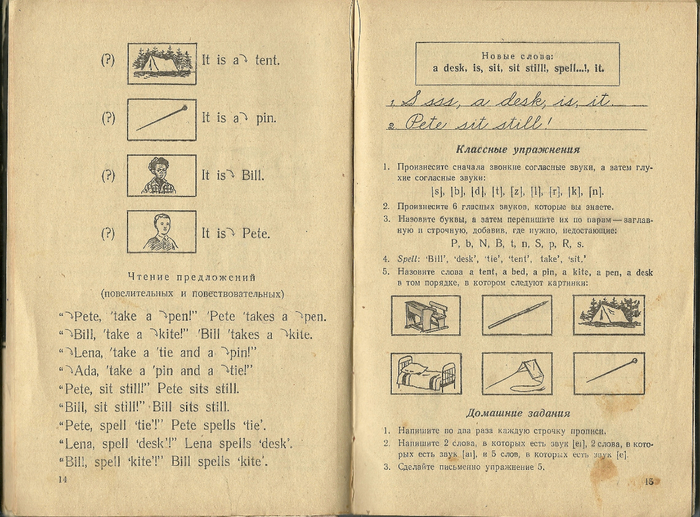 (?) It is a⤵ tent.
(?) It is a⤵ pin.
(?) It is⤵ Bill.
(?) It is⤵ Pete.
Чтение предложений
(повелительных и повествовательных)
“⤵Pete, 'take a ⤵pen!” 'Pete 'takes a ⤵pen.
“⤵Bill, 'take a ⤵kite!” 'Bill 'takes a ⤵kite.
“⤵Lena, 'take a 'tie and a ⤵pin!”
“⤵Ada, 'take a 'pin and a ⤵tie!”
“Pete, sit still!” Pete sits still.
“Bill, sit still!” Bill sits still.
“Pete, spell ‘tie’!” Pete spells ‘tie’.
“Lena, spell ‘desk’!” Lena spells ‘desk’.
“Bill, spell ‘kite’!” Bill spells ‘kite’.
14
Новые слова:
a desk, is, sit, sit still!, spell...!, it.
1. S sss, a desk, is, it
2. Pete sit still!
Классные упражнения
1. Произнесите сначала звонкие согласные звуки, а затем глу-
хие согласные звуки:
[s], [b], [d], [t], [z], [l], [r], [k], [n].
2. Произнесите 6 гласных звуков, которые вы знаете.
3. Назовите буквы, а затем перепишите их по парам — заглав-
ную и строчную, добавив, где нужно, недостающие:
P, b, N, B, t, n, S, p, R, s.
4. Spell: ‘Bill’, ‘desk’, ‘tie’, ‘tent’, take’, ‘sit.’
5. Назовите слова a tent, a bed, a pin, a kite, a pen, a desk
в том порядке, в котором следуют картинки:
Домашние задания
1. Напишите по два раза каждую строчку прописи.
2. Напишите 2 слова, в которых есть звук [eɪ], 2 слова, в кото-
рых есть звук [aɪ], и 5 слов, в которых есть звук [e].
3. Сделайте письменно упражнение 5.
15